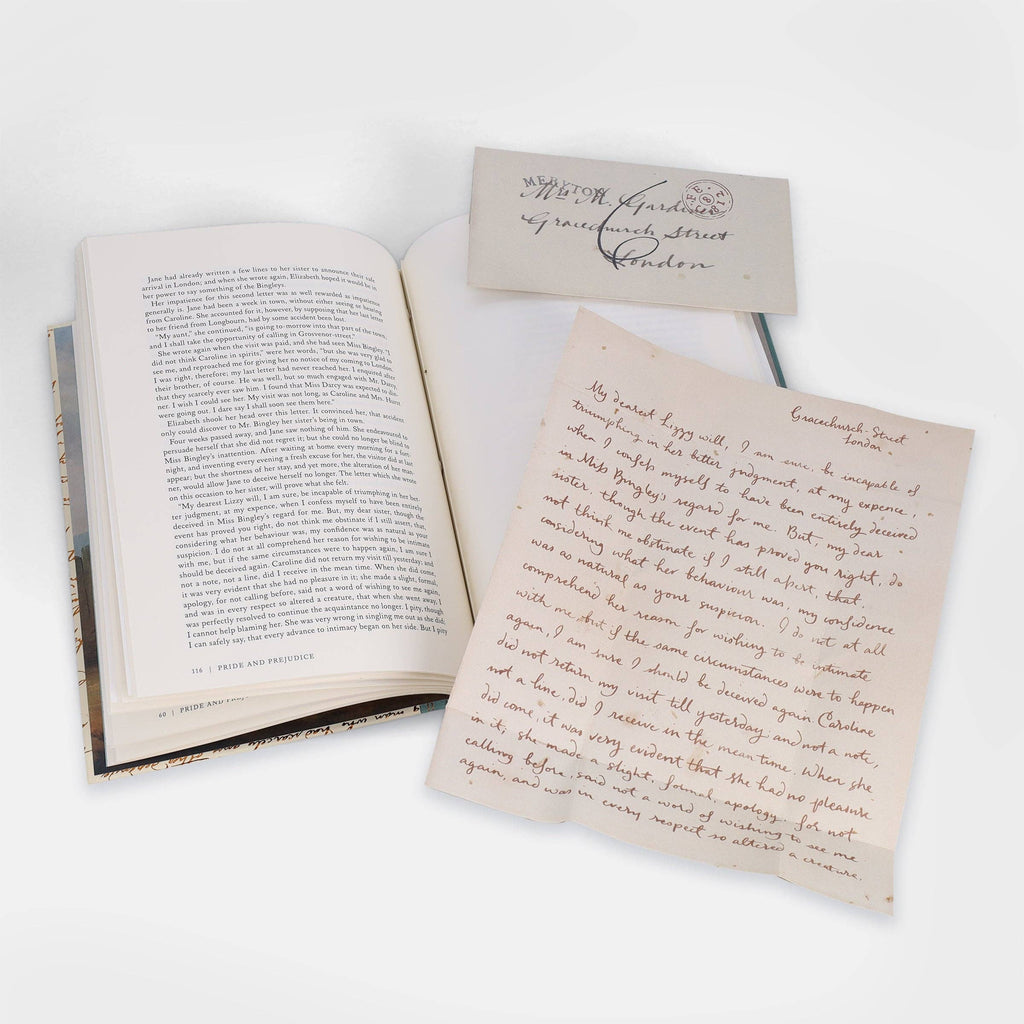 Jane had already written a few lines to her sister to announce their safe
arrival in London; and when she wrote again, Elizabeth hoped it would be in
her power to say something of the Bingleys.
Her impatience for this second letter was as well rewarded as impatience
generally is. Jane had been a week in town, without either seeing or hearing
from Caroline. She accounted for it, however, by supposing that her last letter
to her friend from Longbourn, had by some accident been lost.
"My aunt," she continued, "is going to-morrow into that part of the town,
and I shall take the opportunity of calling in Grosvenor-street."
She wrote again when the visit was paid, and she had seen Miss Bingley. "I
did not think Caroline in spirits," were her words, "but she was very glad to
see me, and reproached me for giving her no notice of my coming to London.
I was right, therefore; my last letter had never reached her. I enquired after
their brother, of course. He was well, but so much engaged with Mr. Darcy,
that they scarcely ever saw him. I found that Miss Darcy was expected to din-
ner. I wish I could see her. My visit was not long, as Caroline and Mrs. Hurst
were going out. I dare say I shall soon see them here."
Elizabeth shook her head over this letter. It convinced her, that accident
only could discover to Mr. Bingley her sister's being in town.
Four weeks passed away, and Jane saw nothing of him. She endeavoured to
persuade herself that she did not regret it; but she could no longer be blind to
Miss Bingley's inattention. After waiting at home every morning for a fort-
night, and inventing every evening a fresh excuse for her, the visitor did at last
appear; but the shortness of her stay, and yet more, the alteration of her man-
ner, would allow Jane to deceive herself no longer. The letter which she wrote
on this occasion to her sister, will prove what she felt.
"My dearest Lizzy will, I am sure, be incapable of triumphing in her bet-
ter judgment, at my expence, when I confess myself to have been entirely
deceived in Miss Bingley's regard for me. But, my dear sister, though the
event has proved you right, do not think me obstinate if I still assert, that,
considering what her behaviour was, my confidence was as natural as your
suspicion. I do not at all comprehend her reason for wishing to be intimate
with me, but if the same circumstances were to happen again, I am sure I
should be deceived again. Caroline did not return my visit till yesterday; and
not a note, not a line, did I receive in the mean time. When she did come,
it was very evident that she had no pleasure in it; she made a slight, formal,
apology, for not calling before, said not a word of wishing to see me again,
and was in every respect so altered a creature, that when she went away, I
was perfectly resolved to continue the acquaintance no longer. I pity, though
I cannot help blaming her. She was very wrong in singling me out as she did;
I can safely say, that every advance to intimacy began on her side. But I pity
116 | PRIDE AND PREJUDICE
60 | PRIDE AND
MERYTON
FE 8 1812
Mrs M. Gardiner
Gracechurch Street
London
Gracechurch-Street
London
My dearest Lizzy will, I am sure, be incapable of
triumphing in her better judgment, at my expence,
when I confess myself to have been entirely deceived
in Miss Bingley's regard for me. But, my dear
sister, though the event has proved you right, do
not think me obstinate if I still assert, that,
considering what her behaviour was, my confidence
was as natural as your suspicion. I do not at all
comprehend her reason for wishing to be intimate
with me, but if the same circumstances were to happen
again, I am sure I should be deceived again. Caroline
did not return my visit till yesterday; and not a note,
not a line, did I receive in the mean time. When she
did come, it was very evident that she had no pleasure
in it; she made a slight, formal, apology, for not
calling before, said not a word of wishing to see me
again, and was in every respect so altered a creature,